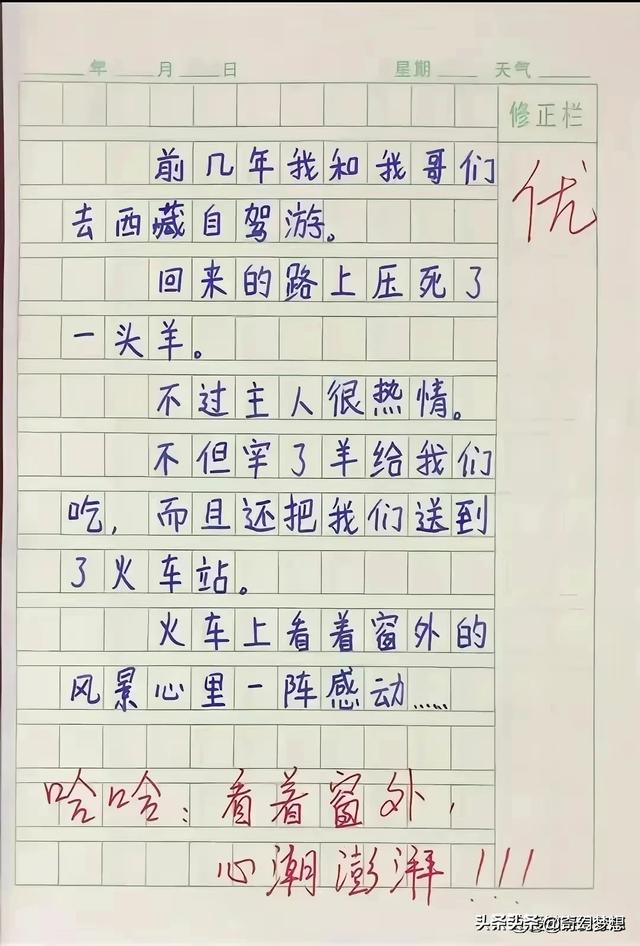 年 月 日 星期 天气
修正栏
前几年我和我哥们
去西藏自驾游。
回来的路上压死了
一头羊。
不过主人很热情。
不但宰了羊给我们
吃,而且还把我们送到
了火车站。
火车上看着窗外的
风景心里一阵感动……
优
哈哈:看着窗外,
心潮澎湃!!!
头条 @奇幻梦想